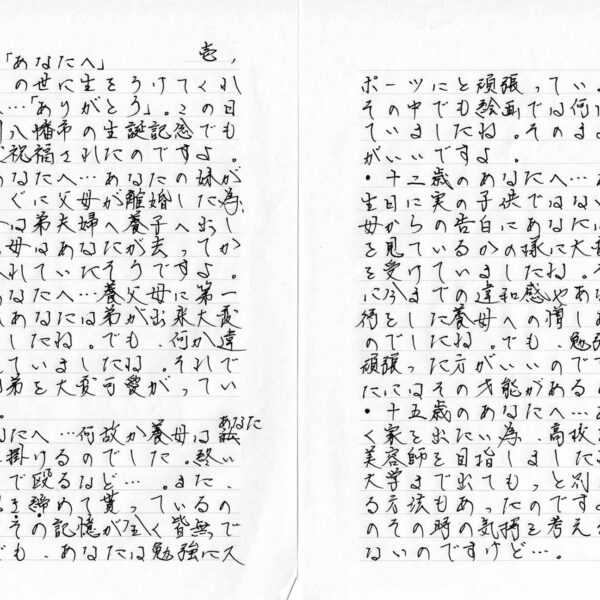 壱、
「あなたへ」
の世に生をうけてくれ
…「ありがとう」。この日
八幡市の生誕記念でも
祝福されたのですよ。
なたへ…あなたの妹が
ぐに父母が離婚した為、
は弟夫婦へ養子へ出し
母はあなたが去ってか
れていたそうですよ。
なたへ…養父母に第一
あなたは弟が出来大変
したね。でも、何か違
ていましたね。それで
弟を大変可愛がってい
。
あなた
たへ…何故か養母は
掛けるのでした。終い
で殴るなど…。また、
を締めて貰っているの
その記憶が全く皆無で
も、あなたは勉強にス
ポーツにと頑張ってい
その中でも絵画では何
ていましたね。そのま
がいいですよ。
・十二歳のあなたへ…
生日に実の子供ではな
母からの告白にあなた
を見ているかの様に大
を受けていましたね。
に今までの違和感やあ
をした養母への憎し
のでしたね。でも、勉
頑張った方がいいので
たにはその才能がある
・十五歳のあなたへ…
く家を出たい為、高校
美容師を目指しました
大学まで出てもっと別
る方法もあったのです
のその時の気持を考え
ないのですけど…。